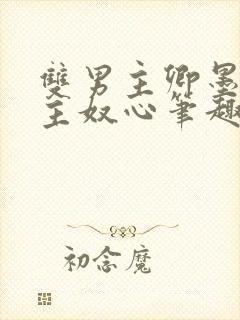 雙男主卿墨
主奴心筆趣
初念魔